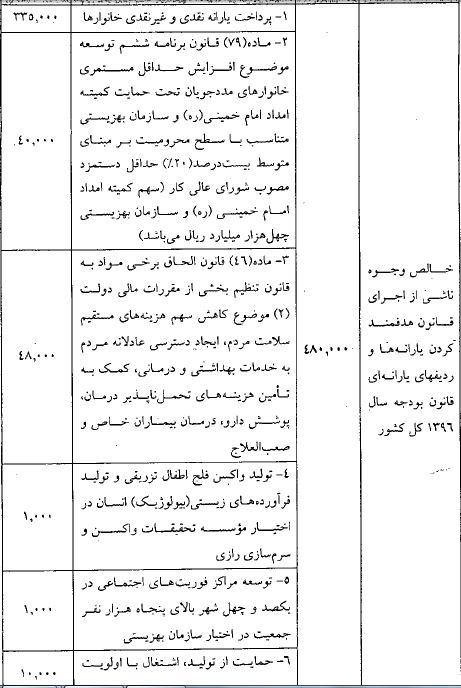 خالص وجوه
ناشی از اجرای
قانون هدفمند
کردن یارانه‌ها و
ردیفهای یارانه‌ای
قانون بودجه سال
۱۳۹۶ کل کشور
۴۸۰,۰۰۰
۱- پرداخت یارانه نقدی و غیرنقدی خانوارها
۳۳۵,۰۰۰
۲- ماده(۷۹) قانون برنامه ششم توسعه
موضوع افزایش حداقل مستمری
خانوارهای مددجویان تحت حمایت کمیته
امداد امام خمینی(ره) و سازمان بهزیستی
متناسب با سطح محرومیت بر مبنای
متوسط بیست‌درصد(۲۰٪) حداقل دستمزد
مصوب شورای عالی کار (سهم کمیته امداد
امام خمینی (ره) و سازمان بهزیستی
چهل‌هزار میلیارد ریال می‌باشد)
۴۰,۰۰۰
۳- ماده(۴۶) قانون الحاق برخی مواد به
قانون تنظیم بخشی از مقررات مالی دولت
(۲) موضوع کاهش سهم هزینه‌های مستقیم
سلامت مردم، ایجاد دسترسی عادلانه مردم
به خدمات بهداشتی و درمانی، کمک به
تأمین هزینه‌های تحمل‌ناپذیر درمان،
پوشش دارو، درمان بیماران خاص و
صعب‌العلاج
۴۸,۰۰۰
۴- تولید واکسن فلج اطفال تزریقی و تولید
فرآورده‌های زیستی(بیولوژیک) انسان در
اختیار مؤسسه تحقیقات واکسن و
سرم‌سازی رازی
۱,۰۰۰
۵- توسعه مراکز فوریت‌های اجتماعی در
یکصد و چهل شهر بالای پنجاه هزار نفر
جمعیت در اختیار سازمان بهزیستی
۱,۰۰۰
۶- حمایت از تولید، اشتغال با اولویت
۱۰,۰۰۰